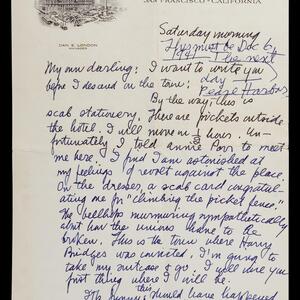 SAN FRANCISCO · CALIFORNIA
DAN E. LONDON
MANAGER
Saturday morning
This must be Dec 6,
1941 — The next
day —
Pearl Harbor
My own darling: I want to write you
before I descend in the town:
By the way, this is
scab stationery. There are pickets outside
the hotel. I will move in ½ hour. Un-
fortunately I told Annie to meet
me here. I find I am astonished at
my feelings of revolt against the place.
On the dresser, a scab card congratul-
ating me for "climbing the picket fence."
The bellhops murmuring sympathetically
about how the unions have to be
broken. This is the town where Harry
Bridges was convicted. I'm going to
take my suitcase & go. I will wire you
just where I will be.
It's funny this should have happened